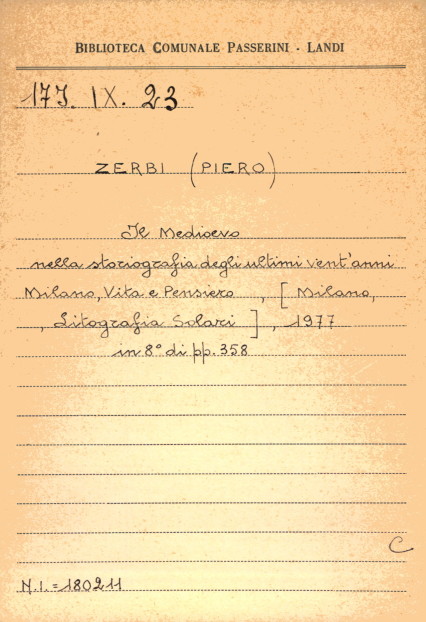 BIBLIOTECA COMUNALE PASSERINI - LANDI
17J. IX. 23
ZERBI (PIERO)
Il Medioevo
nella storiografia degli ultimi vent'anni
Milano, Vita e Pensiero , [ Milano,
, Litografia Solari ] , 1977
in 8° di pp. 358
C
N.I. = 180211